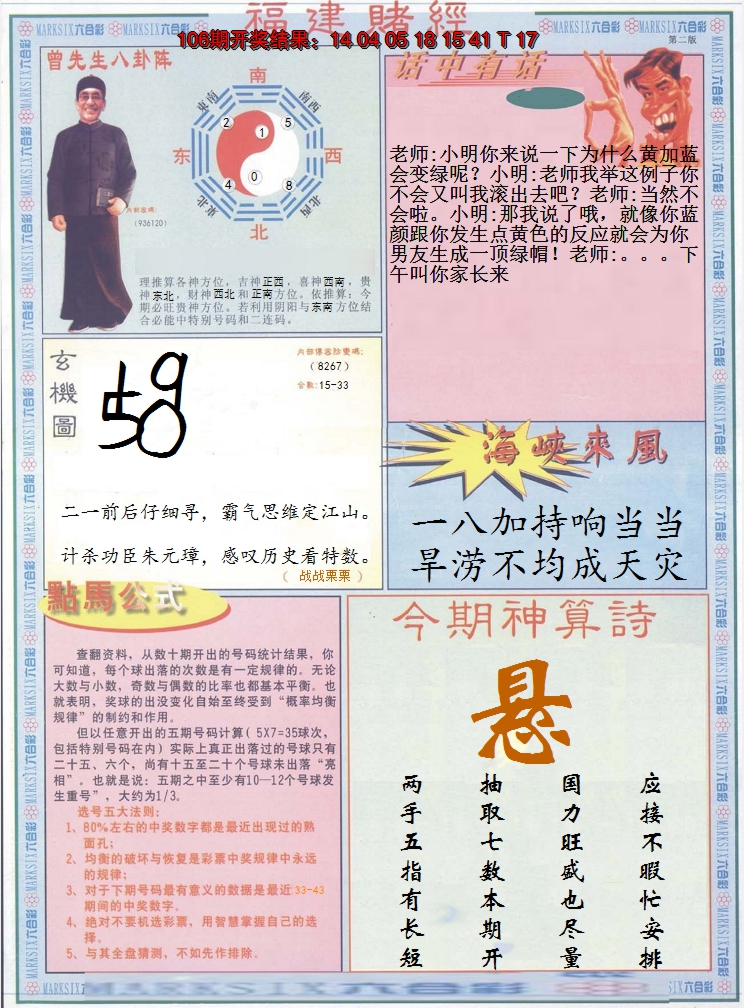 福建賭經
106期开奖结果：14 04 05 18 15 41 T 17
MARKSIX六合彩
第二版
曾先生八卦阵
南
东南
西南
2
1
5
东
西
4
0
8
东北
西北
北
内部密碼:
(936120)
理推算各神方位，吉神正西，喜神西南，贵
神东北，财神西北和正南方位。依推算：今
期必旺贵神方位。若利用阴阳与东南方位结
合必能中特别号码和二连码。
话中有话
老师:小明你来说一下为什么黄加蓝
会变绿呢？小明:老师我举这例子你
不会又叫我滚出去吧？老师:当然不
会啦。小明:那我说了哦，就像你蓝
颜跟你发生点黄色的反应就会为你
男友生成一顶绿帽！老师:。。。下
午叫你家长来
玄機圖
(8267)
合数:15-33
二一前后仔细寻，霸气思维定江山。
计杀功臣朱元璋，感叹历史看特数。
（ 战战栗栗 ）
海峽來風
一八加持响当当
旱涝不均成天灾
點馬公式
查翻资料，从数十期开出的号码统计结果，你
可知道，每个球出落的次数是有一定规律的。无论
大数与小数，奇数与偶数的比率也都基本平衡。也
就表明，奖球的出没变化自始至终受到“概率均衡
规律”的制约和作用。
但以任意开出的五期号码计算( 5X7=35球次，
包括特别号码在内）实际上真正出落过的号球只有
二十五、六个，尚有十五至二十个号球未出落“亮
相”。也就是说：五期之中至少有10—12个号球发
生重号”，大约为1/3。
选号五大法则：
1、80%左右的中奖数字都是最近出现过的熟
面孔；
2、均衡的破坏与恢复是彩票中奖规律中永远
的规律；
3、对于下期号码最有意义的数据是最近33-43
期间的中奖数字。
4、绝对不要机选彩票，用智慧掌握自己的选
择。
5、与其全盘猜测，不如先作排除。
今期神算詩
悬
应接不暇忙安排
国力旺盛也尽量
抽取七数本期开
两手五指有长短